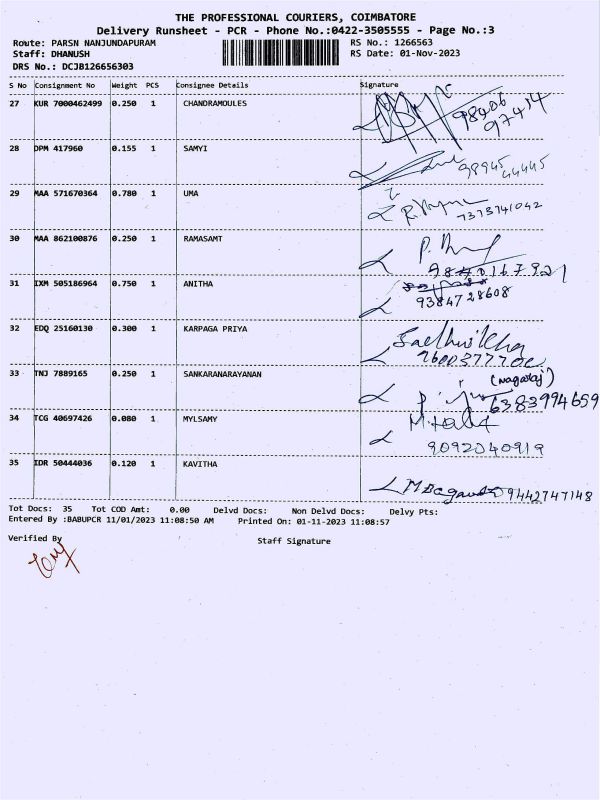 THE PROFESSIONAL COURIERS, COIMBATORE
Delivery Runsheet - PCR - Phone No.:0422-3505555 - Page No.:3
Route: PARSN NANJUNDAPURAM RS No.: 1266563
Staff: DHANUSH RS Date: 01-Nov-2023
DRS No.: DCJB126656303
S No Consignment No Weight PCS Consignee Details Signature
27 KUR 7000462499 0.250 1 CHANDRAMOULES
98406
97414
28 DPM 417960 0.155 1 SAMYI
98945
44445
29 MAA 571670364 0.780 1 UMA
7373741042
30 MAA 862100876 0.250 1 RAMASAMT
31 IXM 505186964 0.750 1 ANITHA
9384728608
32 EDQ 25160130 0.300 1 KARPAGA PRIYA
33 TNJ 7889165 0.250 1 SANKARANARAYANAN
(Nagaraj)
6383994659
34 TCG 40697426 0.080 1 MYLSAMY
9092040919
35 IDR 50444036 0.120 1 KAVITHA
9442747148
Tot Docs: 35 Tot COD Amt: 0.00 Delvd Docs: Non Delvd Docs: Delvy Pts:
Entered By :BABUPCR 11/01/2023 11:08:50 AM Printed On: 01-11-2023 11:08:57
Verified By Staff Signature